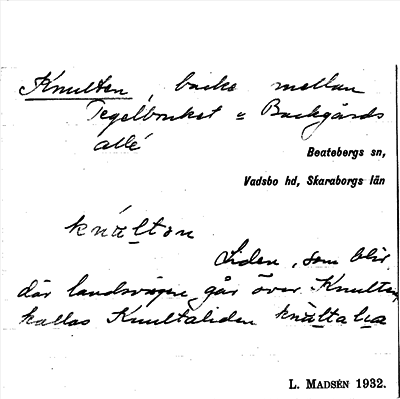 Knulten, backe mellan
Tegelbruket o Backgårds
allé
Beatebergs sn,
Vadsbo hd, Skaraborgs län
knálton
Liden, som blir,
där landsvägen går över Knulten,
kallas Knultaliden
L. MADSÉN 1932.